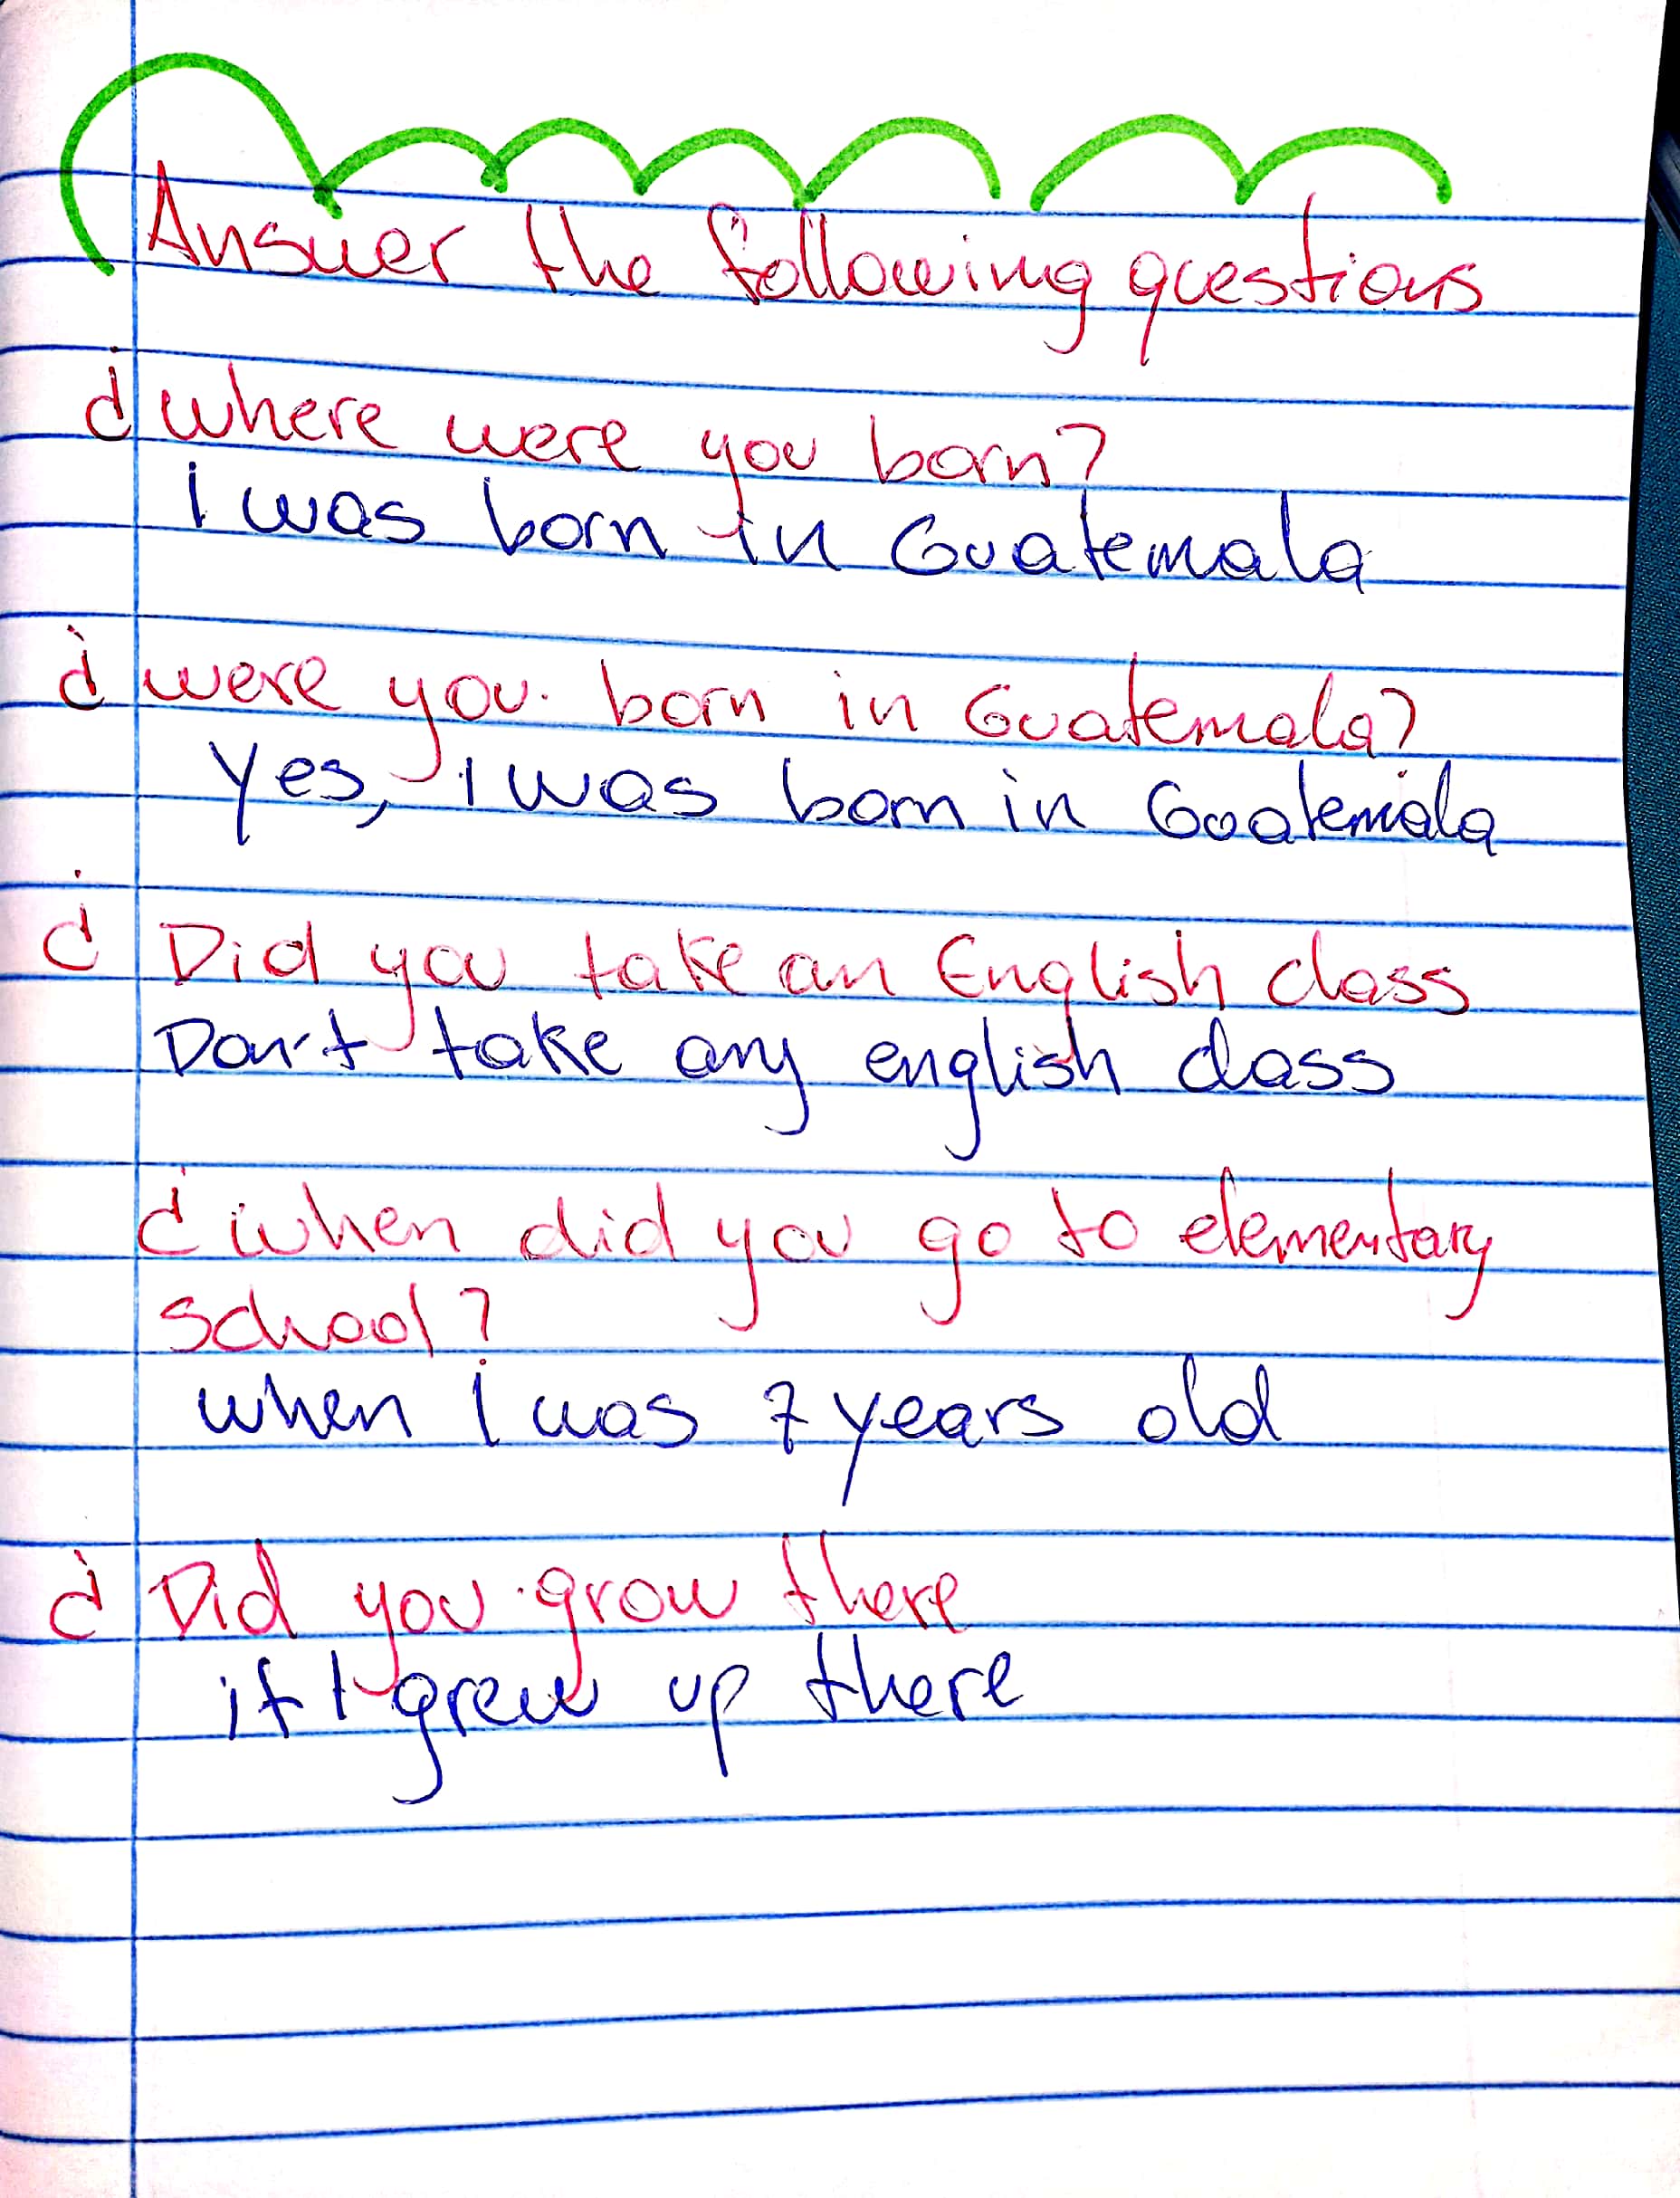 Answer the following questions
¿where were you born?
I was born in Guatemala
¿were you born in Guatemala?
Yes, I was born in Guatemala
¿ Did you take an English class
Don't take any english class
¿when did you go to elementary
school?
when I was 7 years old
¿ Did you grow there
if I grew up there